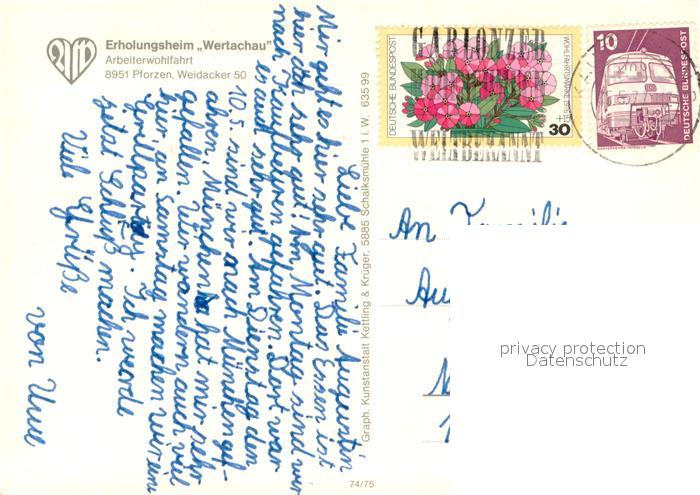 AWO
Erholungsheim „Wertachau"
Arbeiterwohlfahrt
8951 Pforzen, Weidacker 50
Liebe Familie Augustin
Mir geht es hier sehr gut. Das Essen ist
hier auch sehr gut. Am Montag sind wir
nach Kaufbeuren gefahren. Dort war
es auch sehr gut. Am Dienstag den
10.5. sind wir nach München gef-
ahren. München hat mir sehr
gefallen. Wir wandern auch viel
hier, an Samstag machen wir eine
Grillparty. Ich werde
jetzt Schluß machen.
Viele Grüße
von Uwe
Graph. Kunstanstalt Kettling & Krüger, 5885 Schalksmühle 1 i. W. 635 99
74/75
DEUTSCHE BUNDESPOST
WOHLFAHRTSMARKE 1976
30
+15
10
DEUTSCHE BUNDESPOST
GABLONZER
WELTBEKANNT
An Familie
Au
privacy protection
Datenschutz